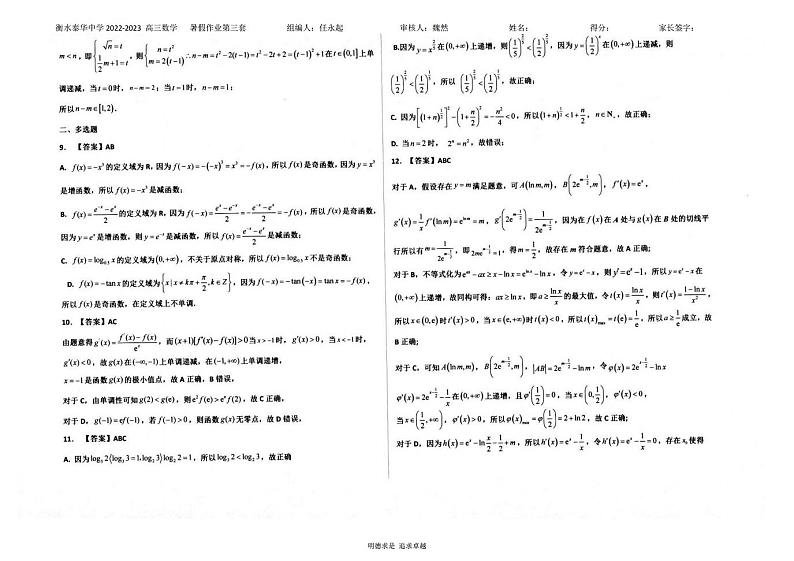 衡水泰华中学 2022-2023 高三数学 暑假作业第三套 组编人：任永起 审核人：魏然 姓名： 得分： 家长签字：
m<n，即{n=t, 1/2 m+1=t，则{n=t², m=2(t-1) ∴n-m=t²-2(t-1)=t²-2t+2=(t-1)²+1在t∈(0,1]上单
调递减，当t=0时，n-m=2；当t=1时，n-m=1；
所以n-m∈[1,2).
二、多选题
9. 【答案】AB
A. f(x)=-x³的定义域为R，因为f(-x)=-(-x)³=x³=-f(x)，所以f(x)是奇函数，因为y=x³
是增函数，所以f(x)=-x³是减函数；
B. f(x)=(e⁻ˣ-eˣ)/2的定义域为R，因为f(-x)=(eˣ-e⁻ˣ)/2=-(e⁻ˣ-eˣ)/2=-f(x)，所以f(x)是奇函数，
因为y=eˣ是增函数，则y=e⁻ˣ是减函数，所以f(x)=(e⁻ˣ-eˣ)/2是减函数；
C. f(x)=log₀.₅x的定义域为(0,+∞)，不关于原点对称，所以f(x)=log₀.₅x不是奇函数；
D. f(x)=-tanx的定义域为{x|x≠kπ+π/2,k∈Z}，因为f(-x)=-tan(-x)=tanx=-f(x)，
所以f(x)是奇函数，在定义域上不单调.
10. 【答案】AC
由题意得g′(x)=(f′(x)-f(x))/eˣ，而(x+1)[f′(x)-f(x)]>0当x>-1时，g′(x)>0，当x<-1时，
g′(x)<0，故g(x)在(-∞,-1)上单调递减，在(-1,+∞)上单调递增，
x=-1是函数g(x)的极小值点，故A正确，B错误，
对于C，由单调性可知g(2)<g(e)，则eᵉf(2)>e²f(e)，故C正确，
对于D，g(-1)=ef(-1)，若f(-1)>0，则函数g(x)无零点，故D错误，
11. 【答案】ABC
A. 因为log₃2⟨log₃3=1,log₂3⟩log₂2=1，所以log₃2<log₂3，故正确
B.因为y=x^(2/3)在(0,+∞)上递增，则(1/5)^(2/3)<(1/2)^(2/3)，因为y=(1/2)ˣ在(0,+∞)上递减，则
(1/2)^(2/3)<(1/2)^(1/3)，所以(1/5)^(2/3)<(1/2)^(1/3)，故正确；
C. 因为[(1+n)^(1/2)]²-(1+n/2)²=-n²/4<0，所以(1+n)^(1/2)<1+n/2，n∈N₊，故正确；
D. 当n=2时，2ⁿ=n²，故错误；
12. 【答案】ABC
对于A，假设存在y=m满足题意，可A(lnm,m)，B(2e^(m-1/2),m)，f′(x)=eˣ，
g′(x)=1/x f′(lnm)=e^(lnm)=m，g′(2e^(m-1/2))=1/(2e^(m-1/2))，因为在f(x)在A处与g(x)在B处的切线平
行所以有m=1/(2e^(m-1/2))，即2me^(m-1/2)=1，得m=1/2，故存在m符合题意，故A正确；
对于B，不等式化为e^(ax)-ax≥x-lnx=e^(lnx)-lnx，令y=eˣ-x，则y′=eˣ-1，所以在y=eˣ-x在
(0,+∞)上递增，故同构可得：ax≥lnx，即a≥lnx/x的最大值，令t(x)=lnx/x，则t′(x)=(1-lnx)/x²，
所以x∈(0,e)时t′(x)>0，当x∈(e,+∞)时t′(x)<0，所以t(x)max=t(e)=1/e，所以a≥1/e成立，故
B正确；
对于C，可知A(lnm,m)，B(2e^(m-1/2),m)，|AB|=2e^(m-1/2)-lnm，令φ(x)=2e^(x-1/2)-lnx
φ′(x)=2e^(x-1/2)-1/x在(0,+∞)上递增，且φ′(1/2)=0，当x∈(0,1/2)，φ′(x)<0，
当x∈(1/2,+∞)，φ′(x)>0，所以φ(x)min=φ(1/2)=2+ln2，故C正确；
对于D，因为h(x)=eˣ-ln x/2-1/2+m，所以h′(x)=eˣ-1/x，令h′(x)=eˣ-1/x=0，存在x₀使得
明德求是 追求卓越